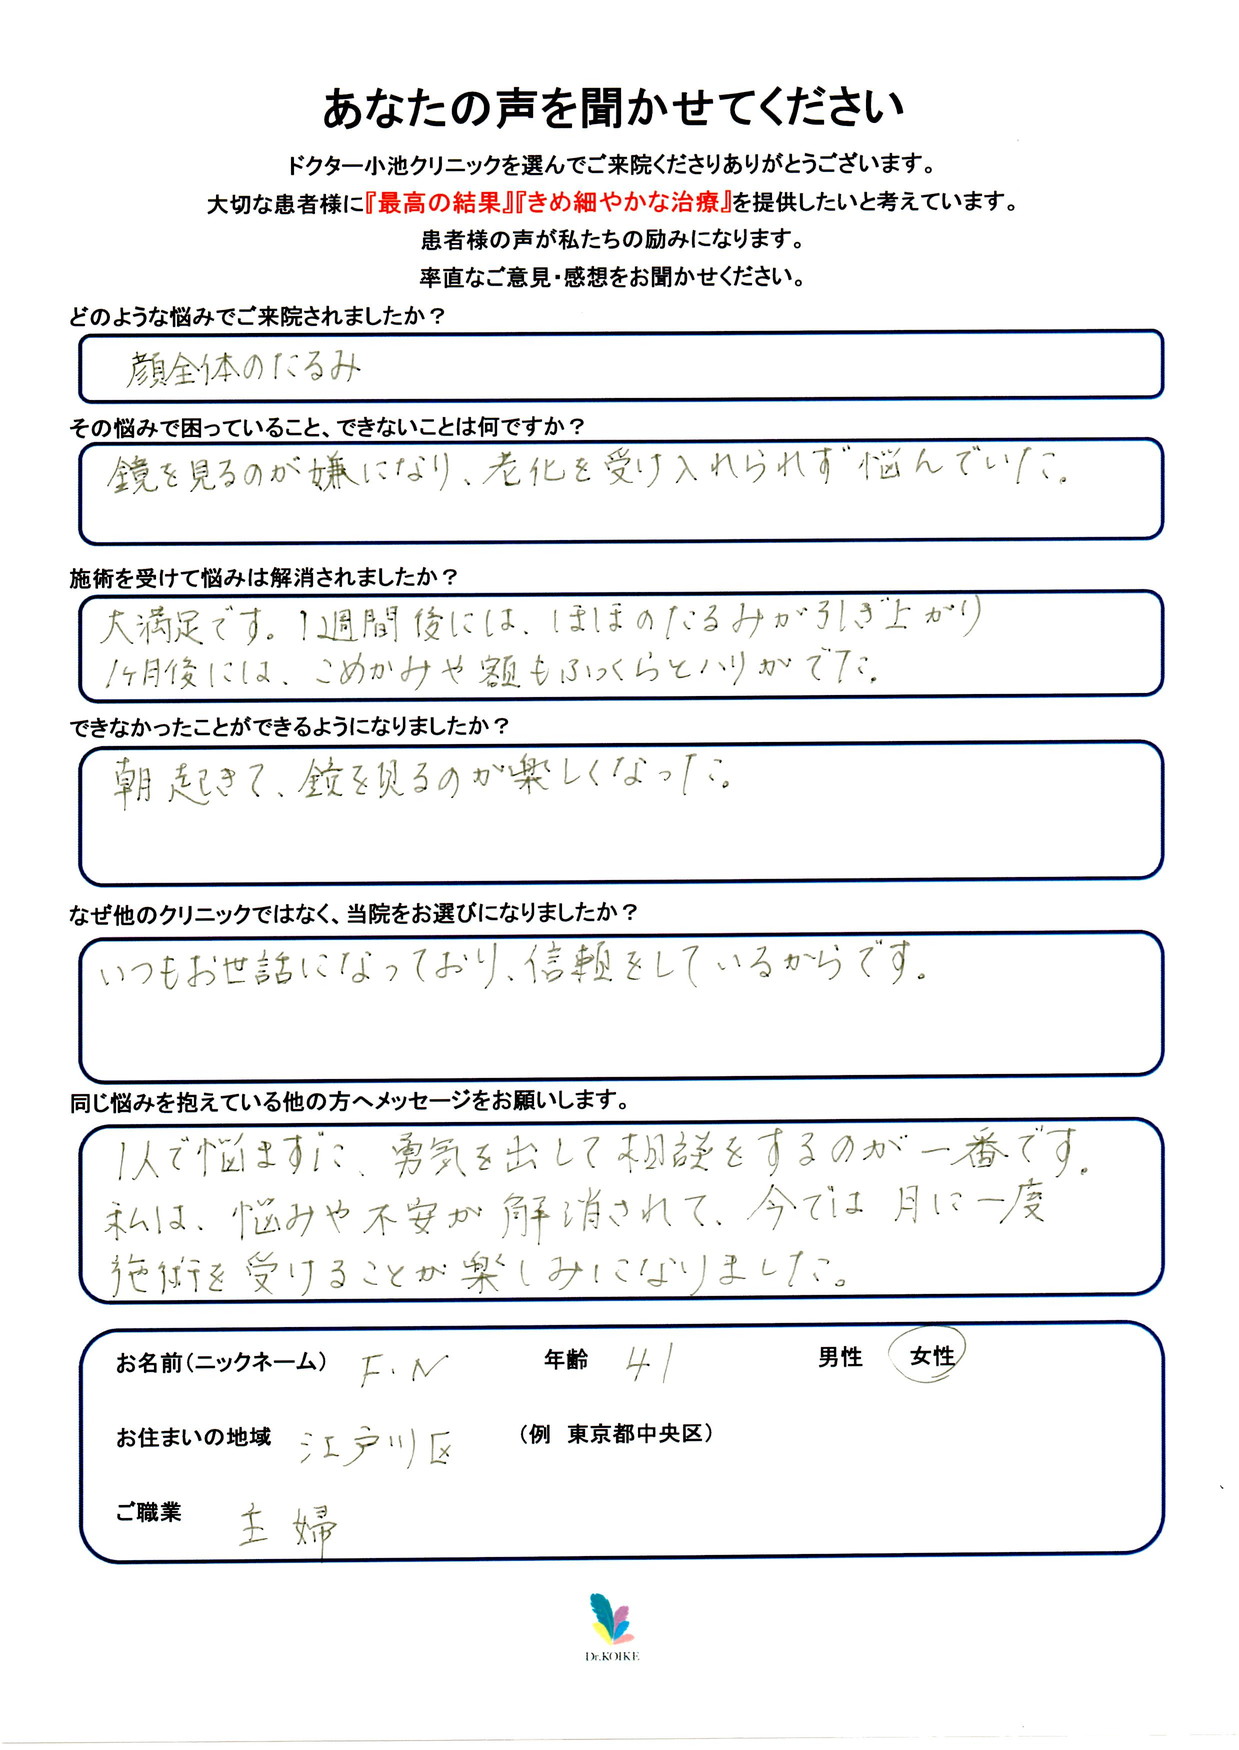 あなたの声を聞かせてください
ドクター小池クリニックを選んでご来院くださりありがとうございます。
大切な患者様に『最高の結果』『きめ細やかな治療』を提供したいと考えています。
患者様の声が私たちの励みになります。
率直なご意見・感想をお聞かせください。
どのような悩みでご来院されましたか？
顔全体のたるみ
その悩みで困っていること、できないことは何ですか？
鏡を見るのが嫌になり、老化を受け入れられず悩んでいた。
施術を受けて悩みは解消されましたか？
大満足です。1週間後には、ほほのたるみが引き上がり
1ヶ月後には、こめかみや額もふっくらとハリがでた。
できなかったことができるようになりましたか？
朝起きて、鏡を見るのが楽しくなった。
なぜ他のクリニックではなく、当院をお選びになりましたか？
いつもお世話になっており、信頼をしているからです。
同じ悩みを抱えている他の方へメッセージをお願いします。
1人で悩まずに、勇気を出して相談をするのが一番です。
私は、悩みや不安が解消されて、今では月に一度
施術を受けることが楽しみになりました。
お名前（ニックネーム） F.N 年齢 41 男性 女性
お住まいの地域 江戸川区 （例 東京都中央区）
ご職業 主婦
Dr.KOIKE